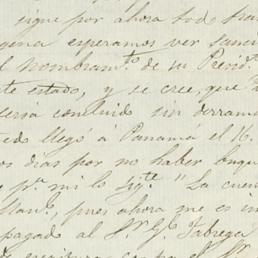 sigue por ahora todo
esperamos ver
el nombramto. de su Presidte.
te estado, y se cree, que
seria concluido sin derrama
edo llegó á Panamá el 16
os dias por no haber buqu
y pa. mi lo sigte. "La cuen
pues ahora me es im
pagado al Sr. G. Fabrega